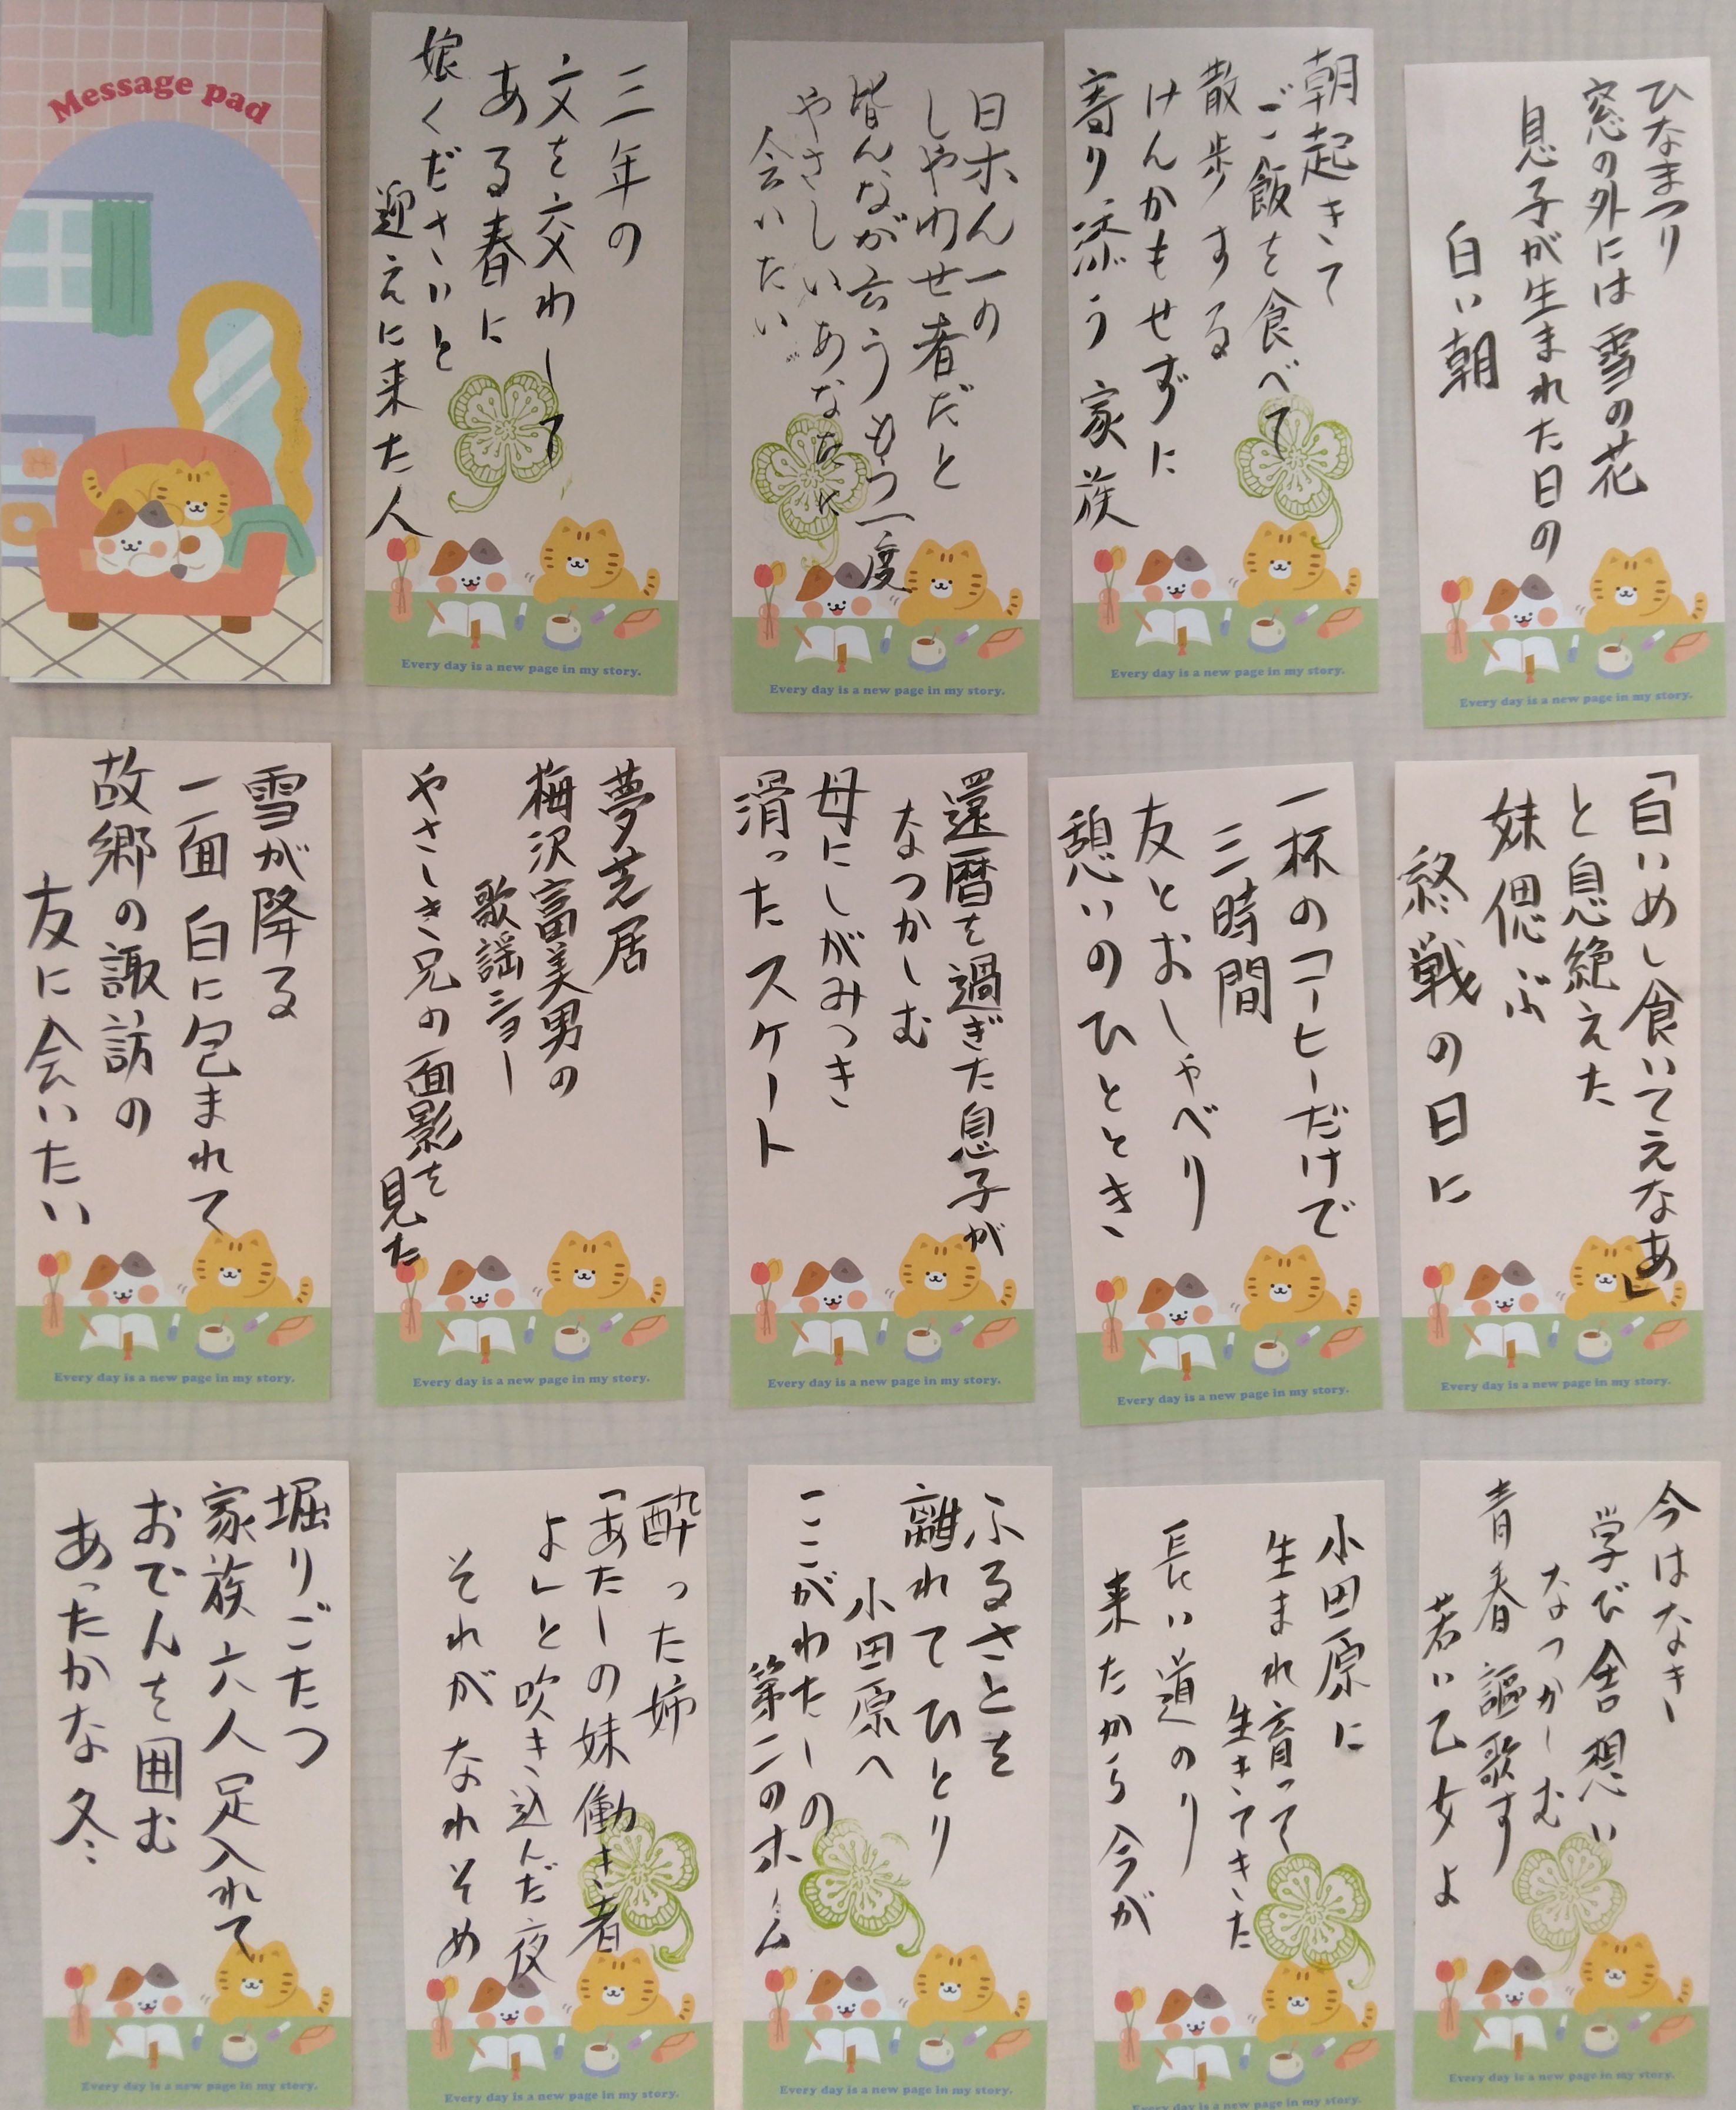 Message pad
三年の
文を交わして
ある春に
娘くださいと
迎えに来た人
Every day is a new page in my story.
日本ん一の
しやわせ者だと
皆んなが云うもう一度
やさしいあなたに
会いたい
Every day is a new page in my story.
朝起きて
ご飯を食べて
散歩する
けんかもせずに
寄り添う家族
Every day is a new page in my story.
ひなまつり
窓の外には雪の花
息子が生まれた日の
白い朝
Every day is a new page in my story.
雪が降る
一面白に包まれて
故郷の諏訪の
友に会いたい
Every day is a new page in my story.
夢芝居
梅沢富美男の
歌謡ショー
やさしき兄の面影を
見た
Every day is a new page in my story.
還暦を過ぎた息子が
なつかしむ
母にしがみつき
滑ったスケート
Every day is a new page in my story.
一杯のコーヒーだけで
三時間
友とおしゃべり
憩いのひととき
Every day is a new page in my story.
「白いめし食いてえなあ」
と息絶えた
妹偲ぶ
終戦の日に
Every day is a new page in my story.
堀りごたつ
家族六人足入れて
おでんを囲む
あったかな冬
Every day is a new page in my story.
酔った姉
「あたしの妹働き者
よ」と吹き込んだ夜
それがなれそめ
Every day is a new page in my story.
ふるさとを
離れてひとり
小田原へ
ここがわたしの
第二のホーム
Every day is a new page in my story.
小田原に
生まれ育って
生きてきた
長い道のり
来たから今が
Every day is a new page in my story.
今はなき
学び舎想い
なつかしむ
青春謳歌す
若い乙女よ
Every day is a new page in my story.